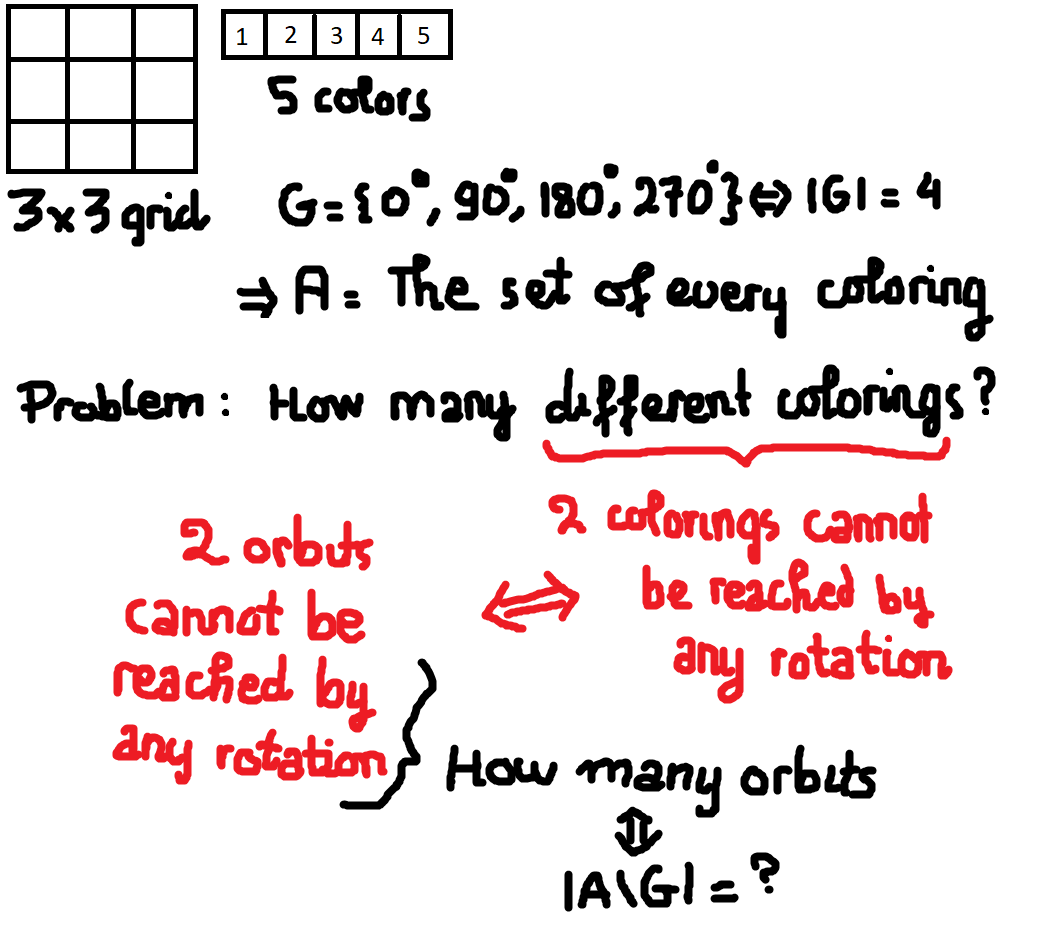 1 2 3 4 5
5 colors
3x3 grid
G = {0°, 90°, 180°, 270°} ⇔ |G| = 4
⇒ A = The set of every coloring
Problem: How many different colorings?
2 colorings cannot
be reached by
any rotation
⇔
2 orbits
cannot be
reached by
any rotation
How many orbits
⇕
|A\G| = ?